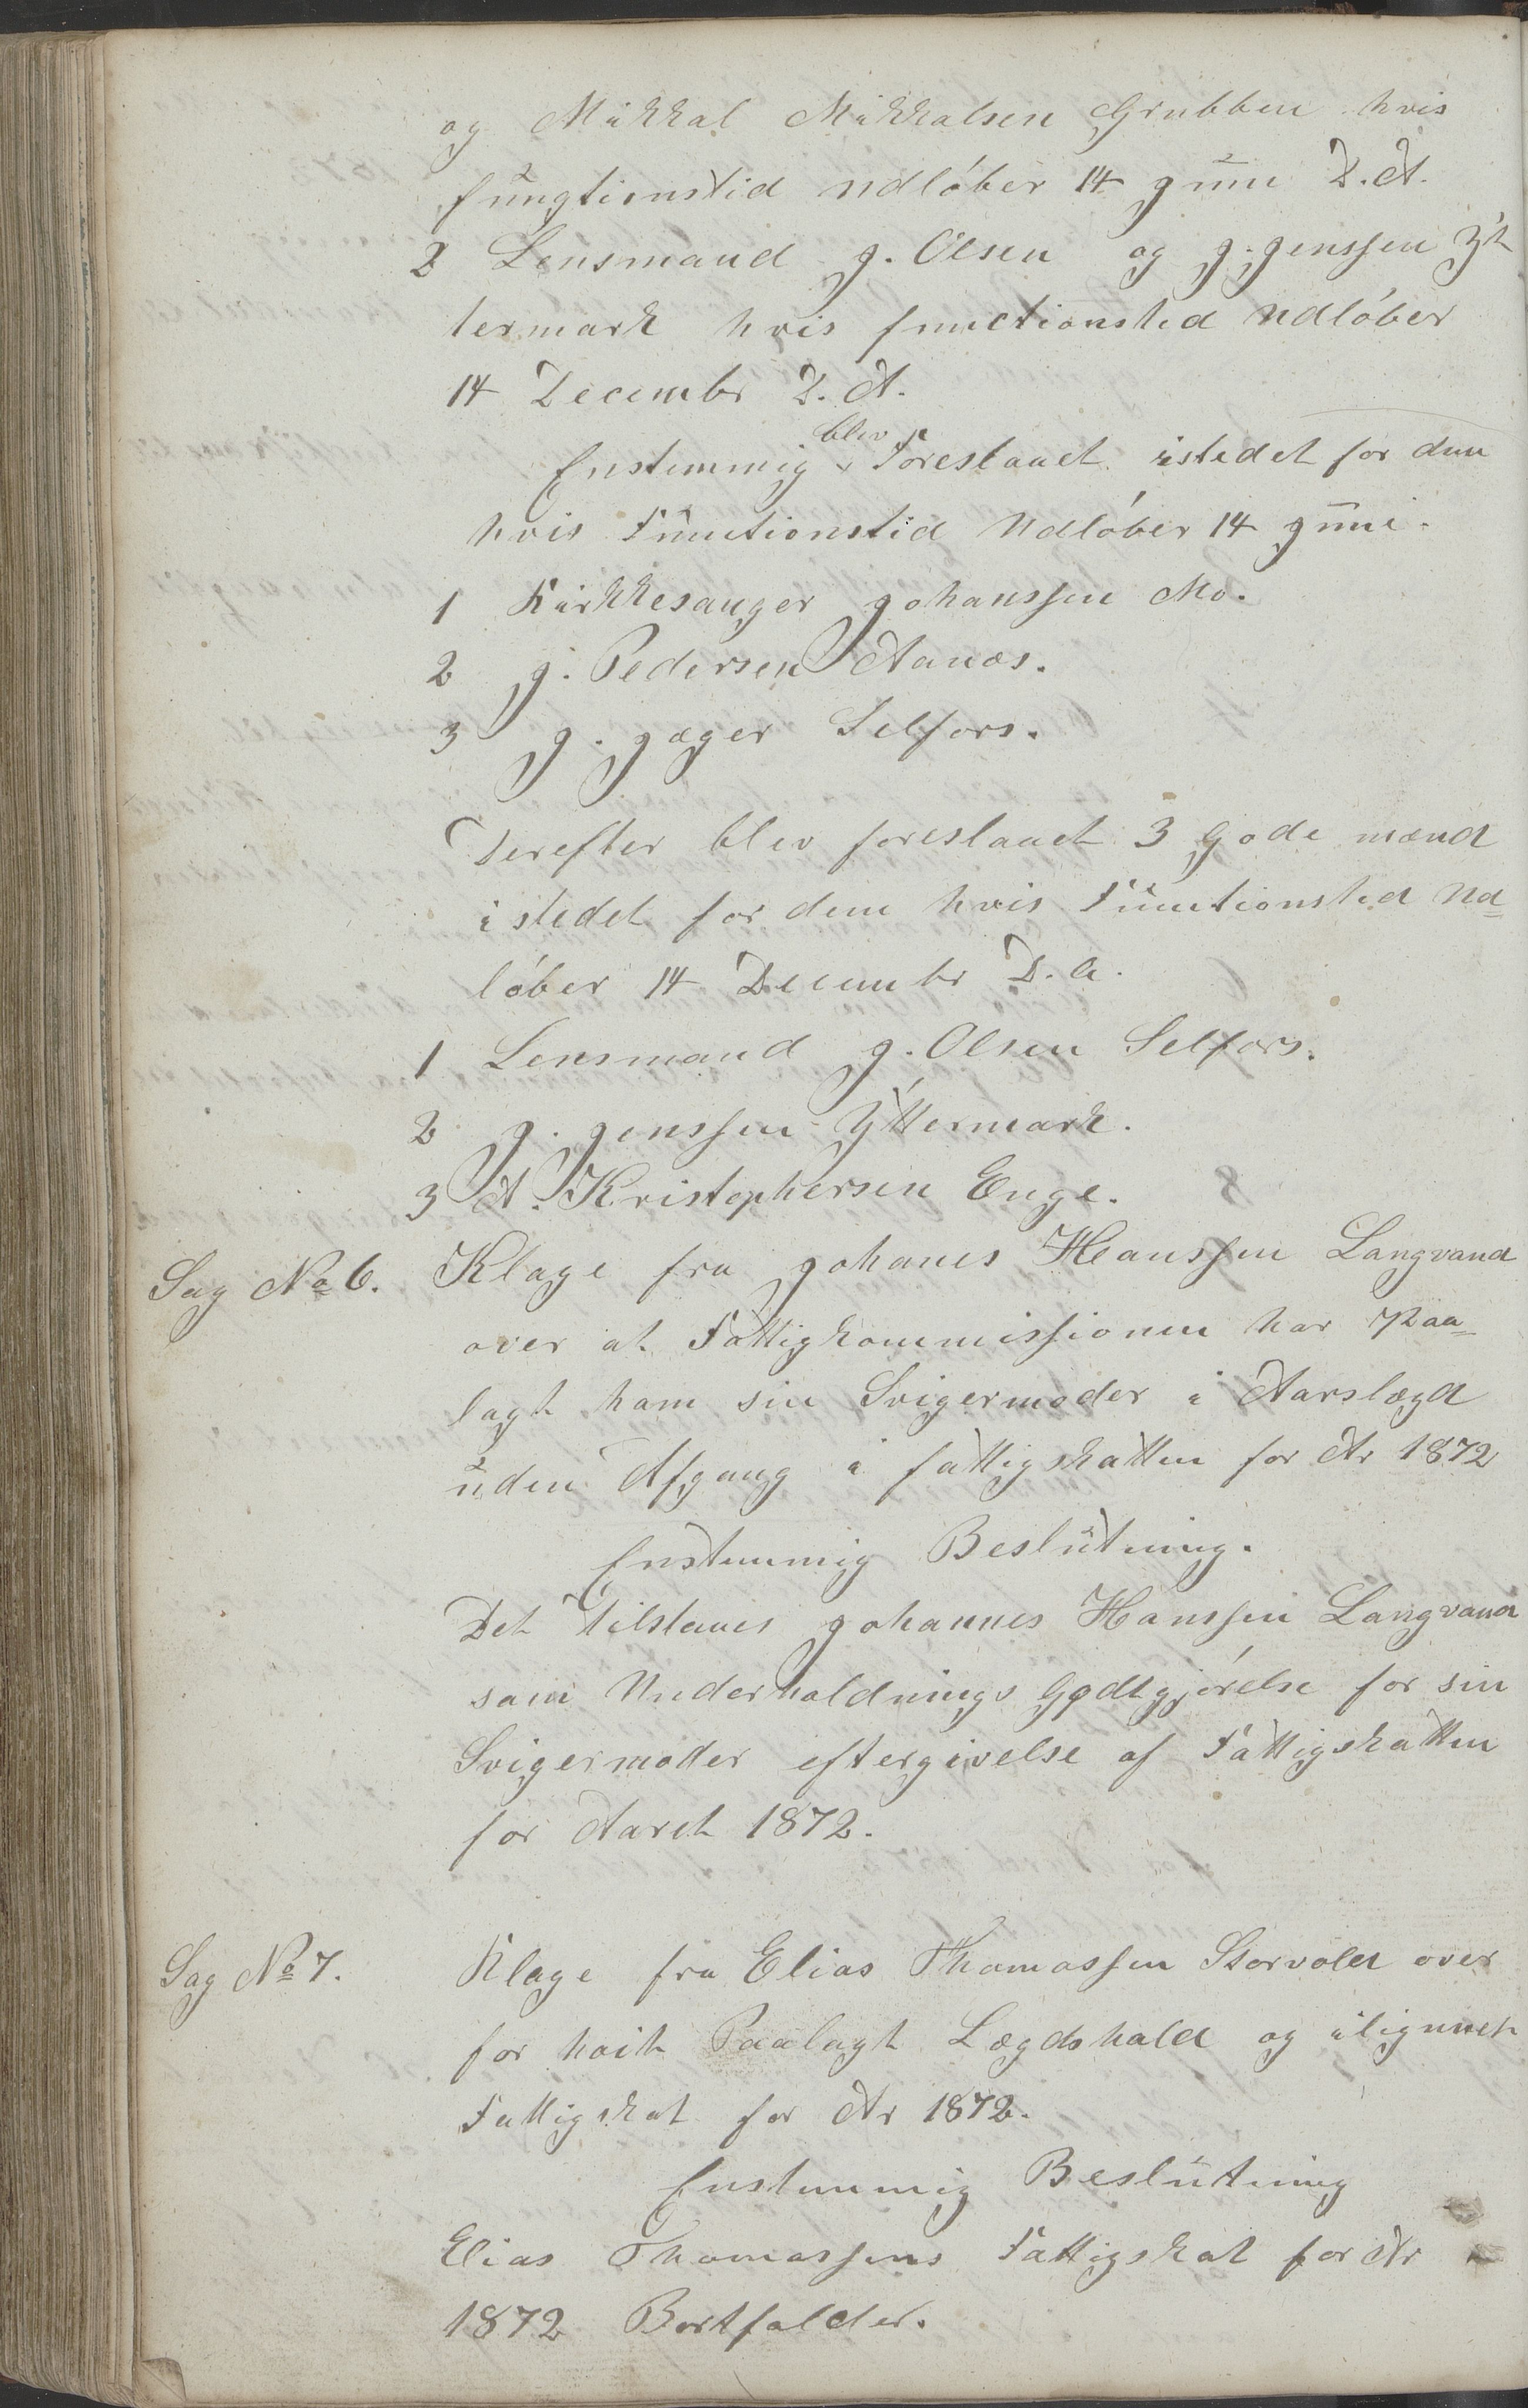 og Mikkal Mikkalsen Grubben hvis
fungtionstid udlöber 14 juni D.A.
2 Lensmand J. Olsen og J. Jenssen Yt
termark hvis functionstid udlöber
14 Decembr D.A.
Enstemmig blev Foreslaaet istedet for dem
hvis Functionstid Udlöber 14 juni.
1 Kirkkesanger Johanssen Mo.
2 J. Pedersen Aanæs.
3 J. Jæger Selfors.
Derefter blev foreslaaet 3 gode mænd
i stedet for dem hvis Functionstid Ud=
löber 14 Decembr D.A.
1 Lensmand J. Olsen Selfors.
2 J. Jenssen Yttermark.
3 A. Kristophersen Enge.
Sag No 6. Klage fra Johanes Hanssen Langvand
over at Fattigkommissionen har Paa=
lagt ham sin Svigermoder i Aarslægd
uden Afgang i fattigskatten for Ar 1872
Enstemmig Beslutning.
Det tilstaaes Johannes Hanssen Langvand
som Underholdnings Godtgjörelse for sin
Svigermoder eftergivelse af Fattigskatten
for Aaret 1872.
Sag No 7. Klage fra Elias Thomassen Storvold over
for hoit Paalagt Lægdshold og ilignnet
Fattigskat for Ar 1872.
Enstemmig Beslutning
Elias Thomassens Fattigskat for Ar
1872 Bortfalder.